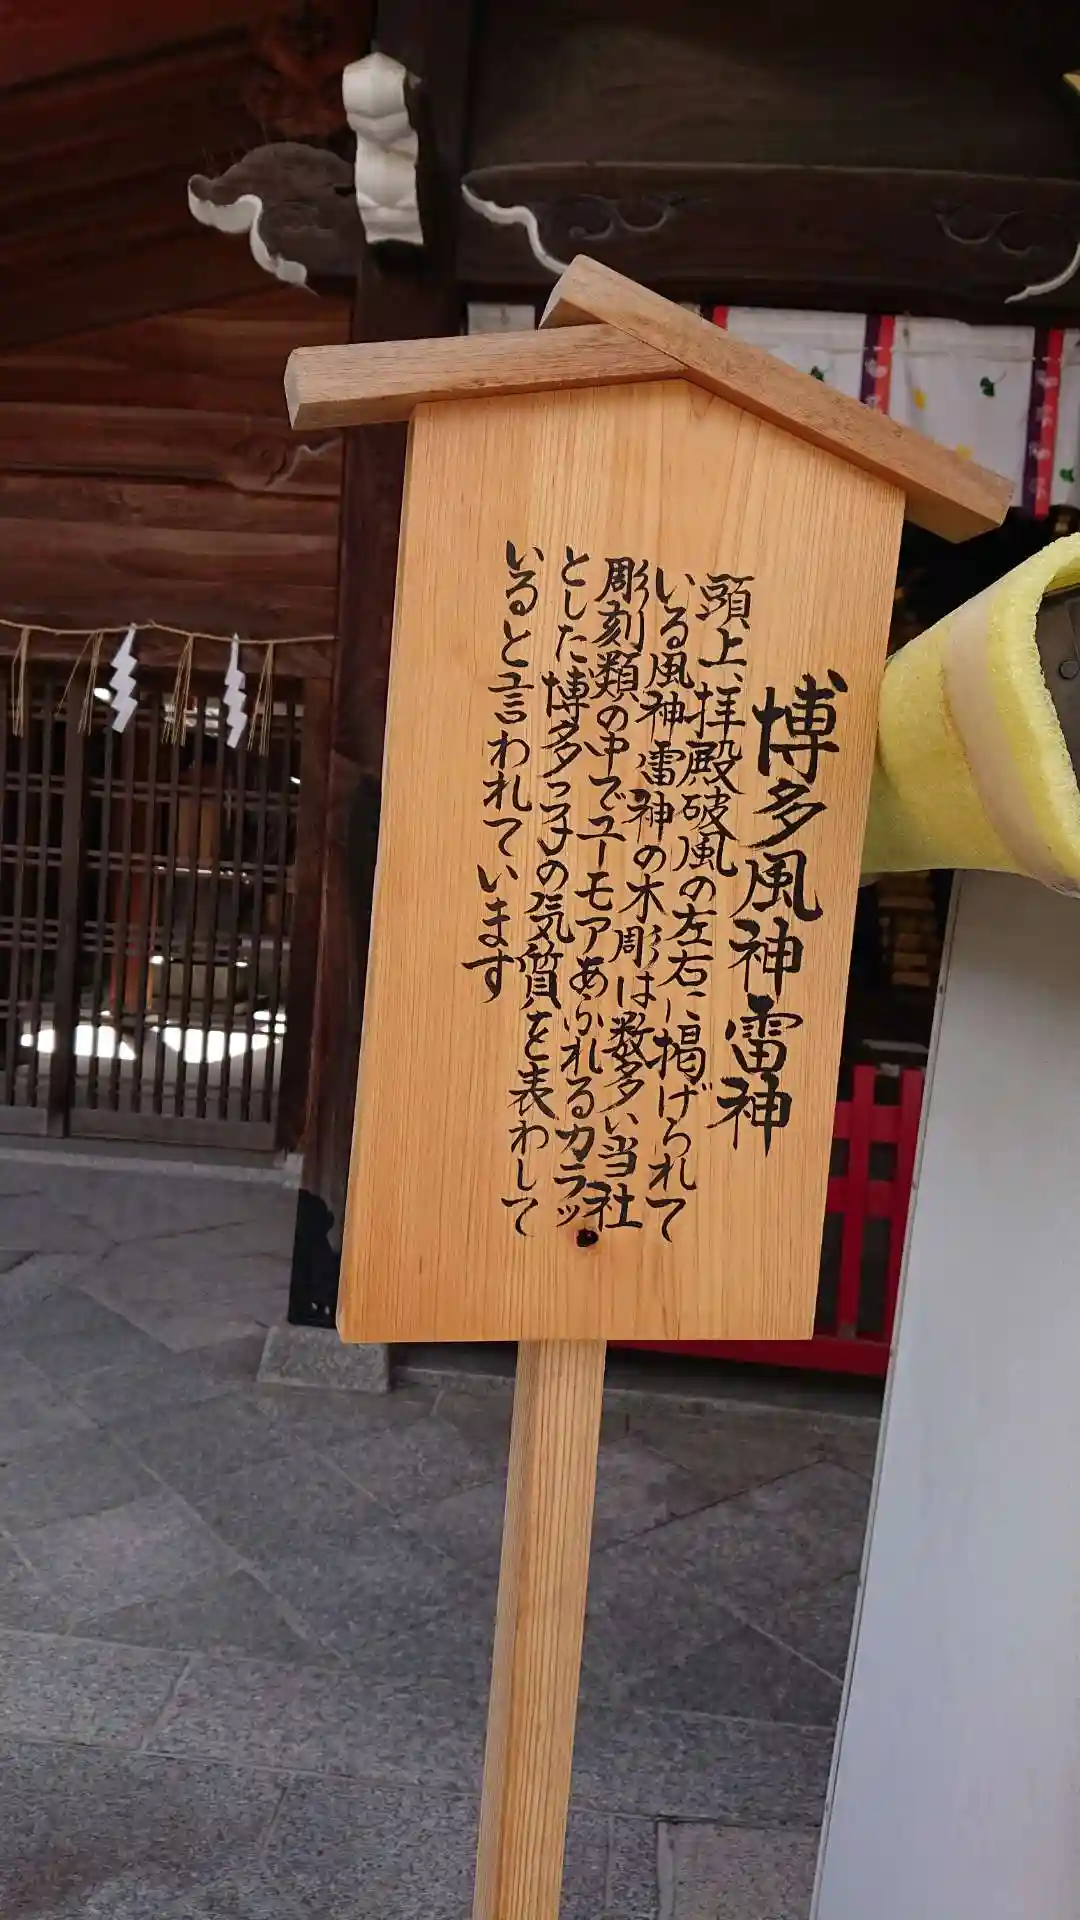 博多風神雷神
頭上、拝殿破風の左右に掲げられて
いる風神雷神の木彫は数多い当社
彫刻類の中でユーモアあふれるカラッ
とした博多っ子の気質を表わして
いると言われています